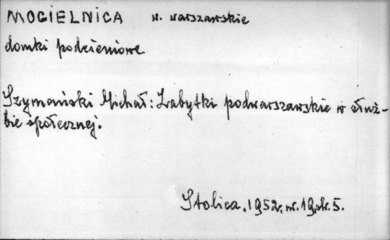 MOGIELNICA w. warszawskie
domki podcieniowe
Szymański Michał: Zabytki podwarszawskie w służ-
bie społecznej.
Stolica, 1952, nr. 19, str. 5.